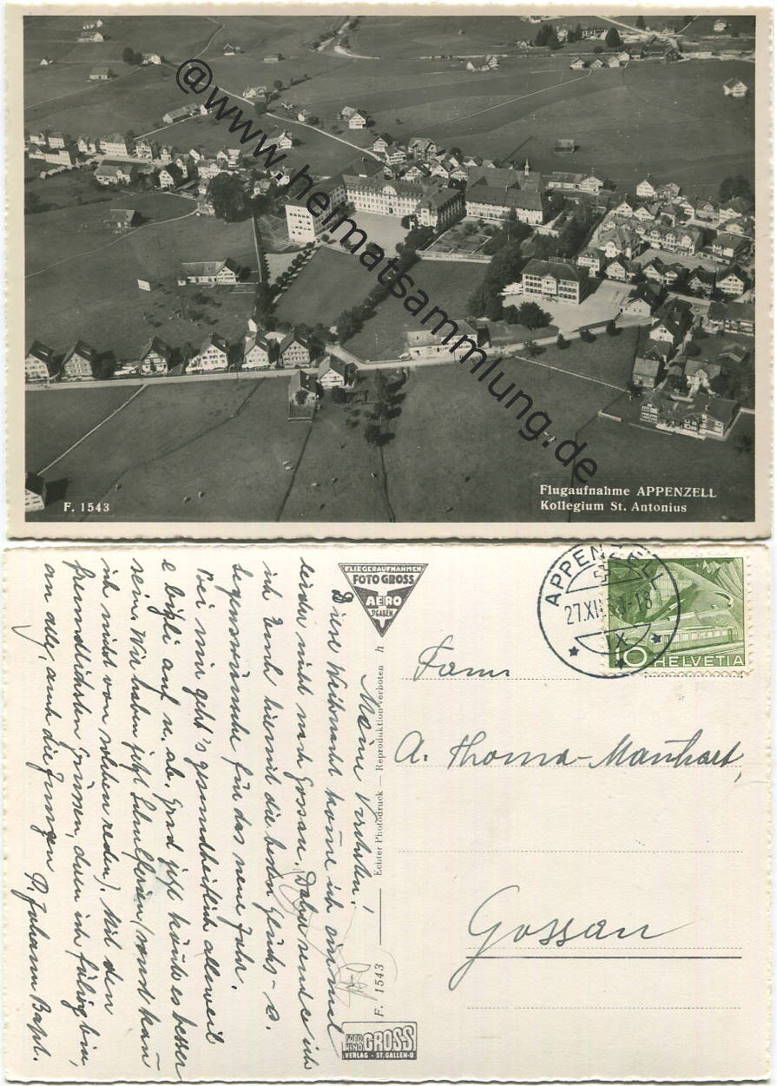 @www.heimatsammlung.de
F. 1543
Flugaufnahme APPENZELL
Kollegium St. Antonius
FLIEGERAUFNAHMEN
FOTO GROSS
AERO
ST. GALLEN
APPENZELL
27.XII
HELVETIA
10
Fam
A. Thoma-Manhart,
Gossau
Echter Photodruck — Reproduktion verboten
F. 1543
FOTO GROSS
VERLAG - ST. GALLEN-O
Meine Verehrten!
Diese Weihnacht komme ich einmal
leider nicht nach Gossau. Daher sende ich
ich Euch hiermit die besten Glücks- &
Segenswünsche für das neue Jahr.
Bei mir geht's gesundheitlich alleweil
e bizli auf u. ab. Grad jetzt könnte es besser
sein. Wir haben jetzt Schulferien (sonst kann
ich nicht von solchen reden). Mit den
freundlichsten Grüssen, deren ich fähig bin,
an alle, auch die Jungen
P. Johann Bapt.